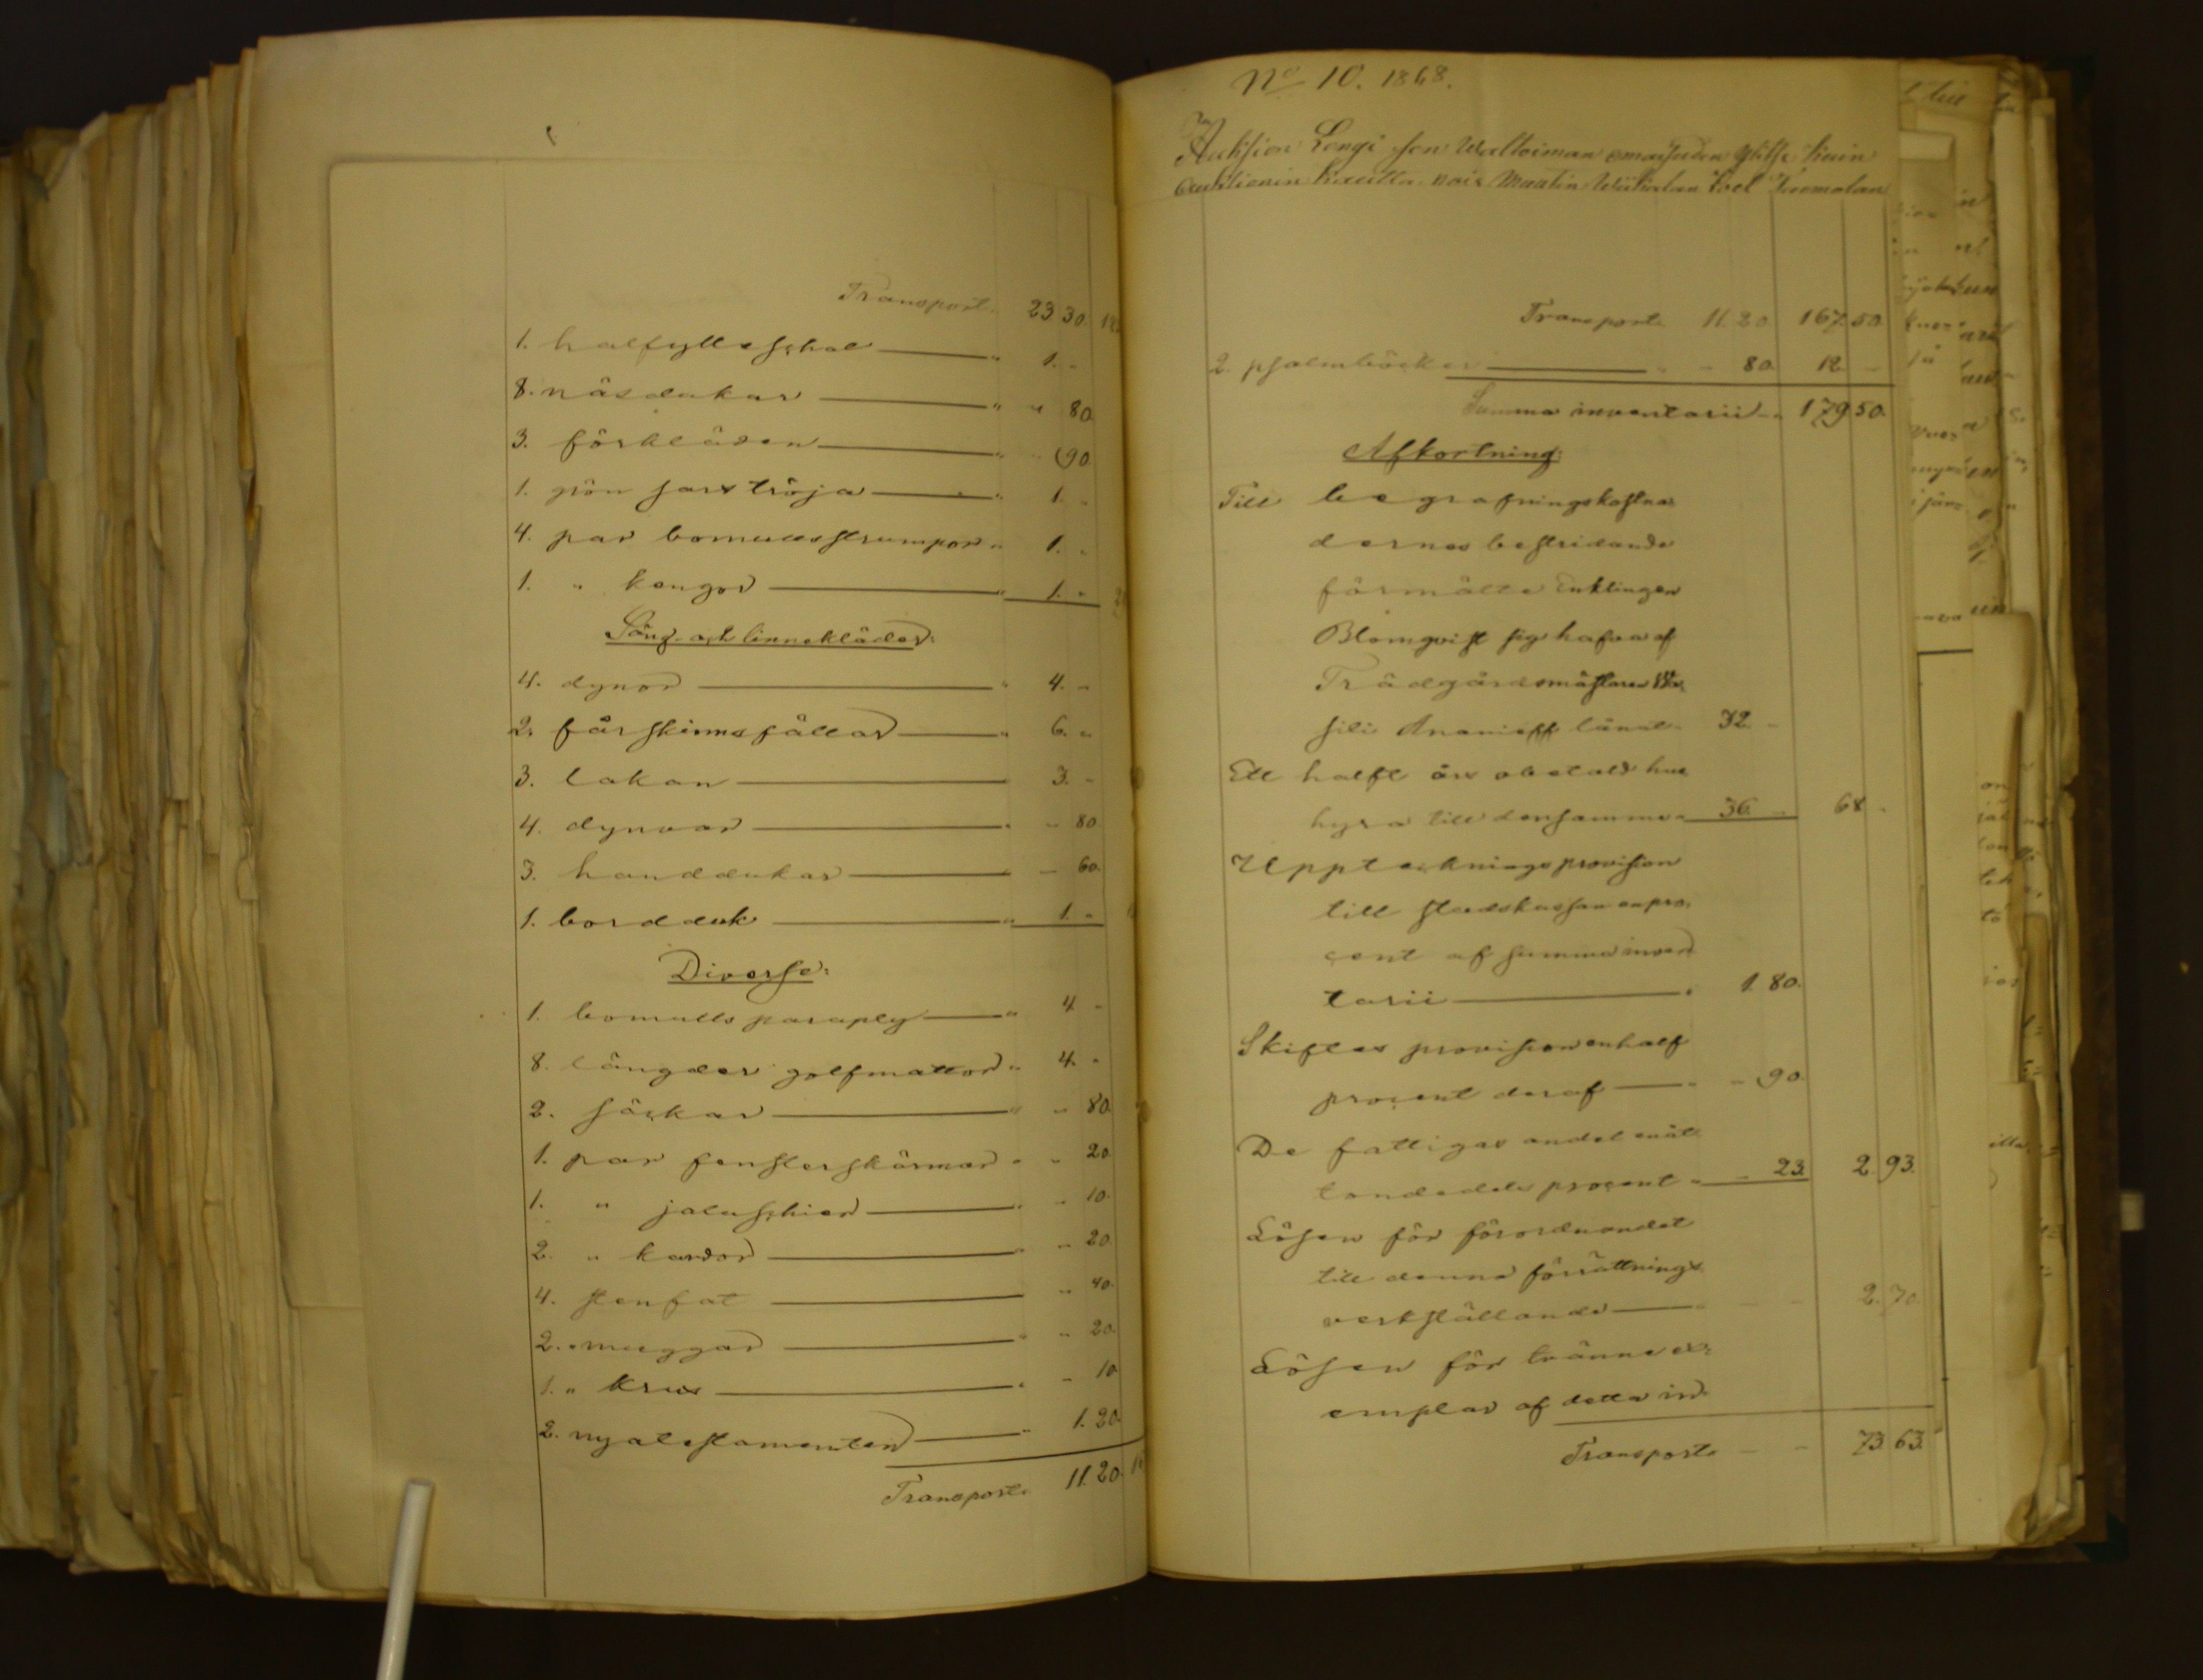 Transport. 23 30.
1. halfylle schal — " 1. -
8. näsdukar — " " 80.
3. förkläden — " " 90.
1. grön sars tröja — " 1. "
4. par bomullsstrumpor " 1. "
1. " kängor — " 1. "
Säng- och linnekläder:
4. dynor — " 4. -
2. fårskinnsfällar — " 6. "
3. lakan — " 3. -
4. dynvar — " - 80
3. handdukar — " - 60.
1. bordduk — " 1. "
Diverse:
1. bomulls paraply — " 4 -
8. längder golfmattor " 4. "
2. säckar — " " 80.
1. par fensterskärmar " " 20.
1. " jaluschier — " - 10.
2. " kardor — " - 20.
4. stenfat — " 40.
2. " muggar — " " 20.
1. " krus — " - 10
2. nya testamenten — " 1. 20.
Transport. 11. 20.
No 10. 1868.
Transport. 11. 20. 167. 50.
2. psalmböcker — " - 80. 12. -
Summa inventarii - " 179 50.
Afkortning:
Till begrafningskostna-
dernas bestridande
förmälte Enklingen
Blomqvist sig hafva af
Trädgårdsmästaren Was-
sili Ananieff lånat - 32. -
Ett halft års obetald hus
hyra till densamma " 36. - 68 -
Uppteckningsprovision
till stadskassan en pro-
cent af summa inven-
tarii — " 1. 80.
Skiftes provision en half
procent deraf — " - 90.
De fattigas andel en åt-
tondedels procent " - 23. 2. 93.
Lösen för förordnandet
till denna förrättnings
verkställande — - - 2. 70.
Lösen för tvänne ex-
emplar af detta in-
Transport. - - 73. 63.